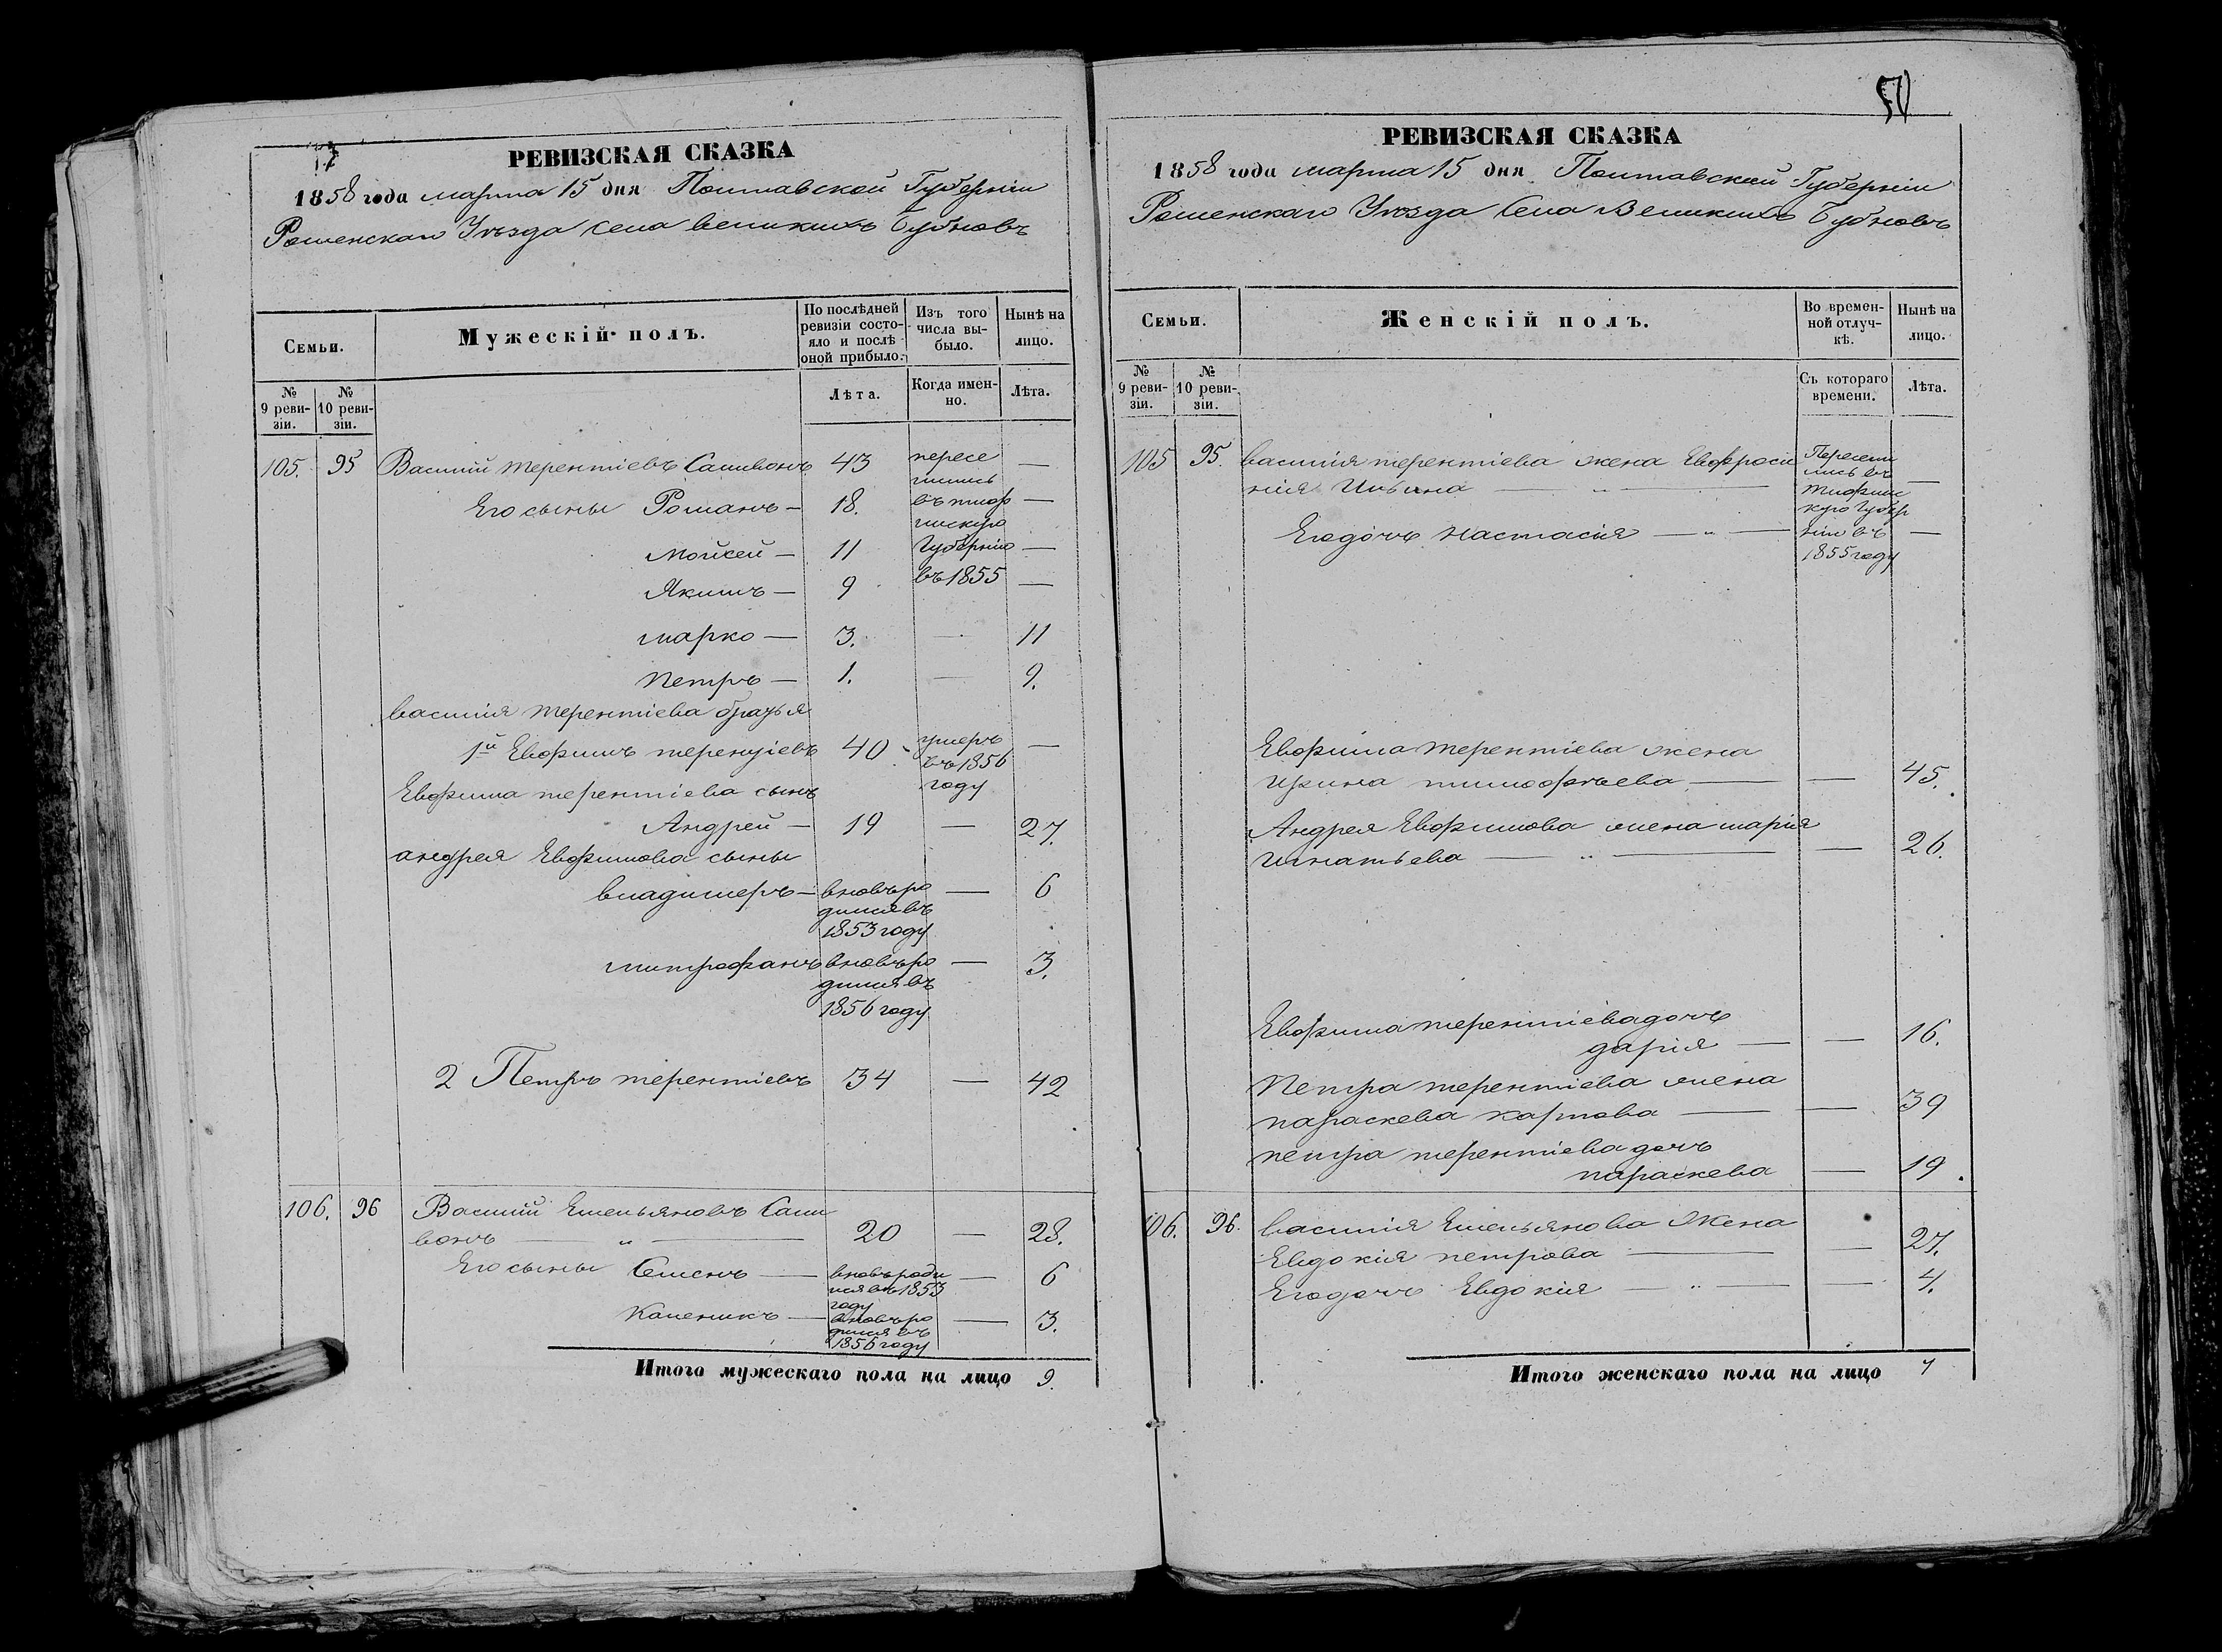 РЕВИЗСКАЯ СКАЗКА
1858 года марта 15 дня Полтавской Губерніи
Роменскаго Уѣзда села великихъ Бубновъ
Семьи.
Мужескій полъ.
По послѣдней ревизіи состояло и послѣ оной прибыло.
Изъ того числа выбыло.
Нынѣ на лицо.
№ 9 ревизіи.
№ 10 ревизіи.
Лѣта.
Когда именно.
Лѣта.
105. 95 Василій терентіевъ Саливонъ 43 пересе —
лились
Его сыны Романъ — 18. въ тиф —
лискую
Мойсей — 11 Губернію —
Якимъ — 9 въ 1855 —
марко — 3. — 11
петръ — 1. — 9.
василія терентіева братья
1й Евфимъ терентіевъ 40 умеръ —
въ 1856
Евфима терентіева сынъ году
Андрей — 19 — 27.
андрея Евфимова сыны
владимеръ — вновь ро — 6
дился въ
1853 году
митрофанъ вновь ро — 3.
дился въ
1856 году
2 Петръ терентіевъ 34 — 42
106. 96 Василій Емельяновъ Сали
вонъ — „ — 20 — 28.
Его сыны Семенъ — вновь роди — 6
лся въ 1853
году
Каленикъ — вновь ро — 3.
дился въ
1856 году
Итого мужескаго пола на лицо 9.
РЕВИЗСКАЯ СКАЗКА
1858 года марта 15 дня Полтавской Губерніи
Роменскаго Уѣзда Села Великихъ Бубновъ
Семьи.
Женскій полъ.
Во временной отлучкѣ.
Нынѣ на лицо.
№ 9 ревизіи.
№ 10 ревизіи.
Съ котораго времени.
Лѣта.
105 95. василія терентіева жена Евфроси Пересели
лись въ —
нія Ильина — „ — тифлис
кую Губер
Его дочь настасія — „ — нію въ —
1855 году
Евфима терентіева жена
ирина тимофѣева — — 45.
Андрея Евфимова жена марія
игнатьева — „ — — 26.
Евфима терентіева дочь
дарія — — 16.
Петра терентіева жена
параскева карпова — — 39
петра терентіева дочь
параскева — 19.
106. 96. василія Емельянова жена
Евдокія петрова — — 27.
Его дочь Евдокія — „ — — 4.
Итого женскаго пола на лицо 7